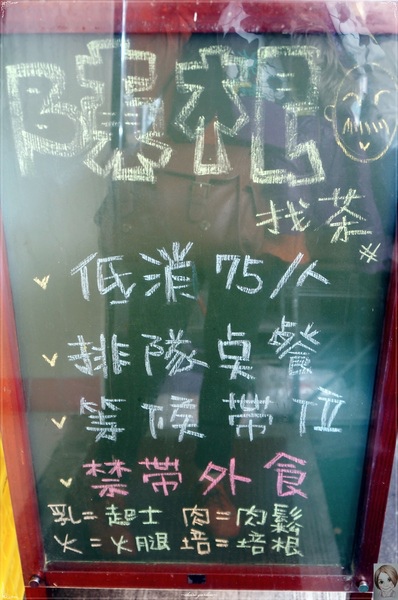 找茶
低消75/人
排隊桌餐
等候帶位
禁帶外食
乳=起士 肉=肉鬆
火=火腿 培=培根